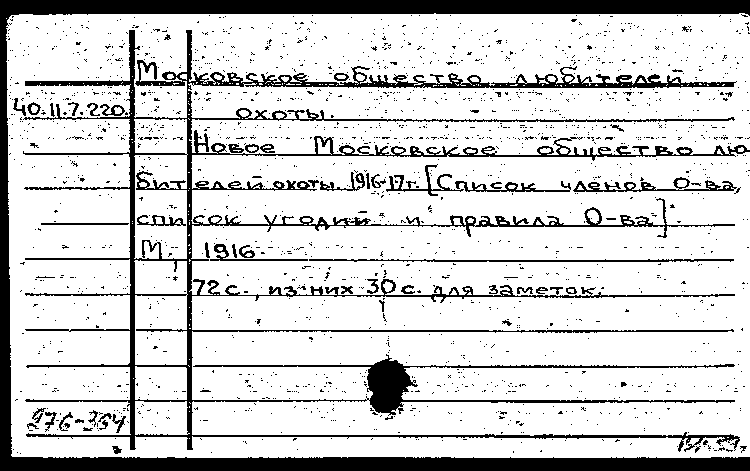 Московское общество любителей
40.11.7.220. охоты.
Новое Московское общество лю
бителей охоты. 1916-17г. [Список членов О-ва,
список угодий и правила О-ва].
М., 1916.
72 с., из них 30 с. для заметок.
276-364